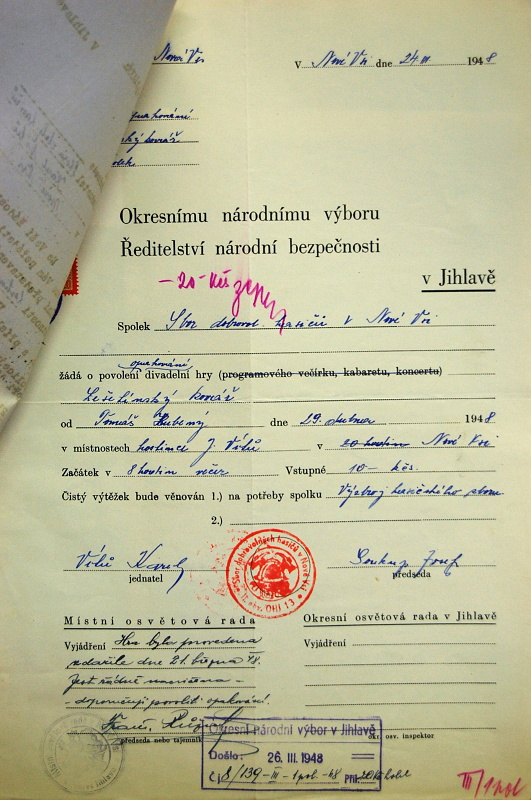 Nová Ves
V Nové Vsi dne 24. III. 1948
opakování
Okresnímu národnímu výboru
Ředitelství národní bezpečnosti
v Jihlavě
-20- Kčs
Spolek Sbor dobrovol. hasičů v Nové Vsi
opakování
žádá o povolení divadelní hry (programového večírku, kabaretu, koncertu)
Lešetínský kovář
od Tomáš dne 29. dubna 1948
v místnostech hostince J. Vítů v 20 hodin Nové Vsi
Začátek v 8 hodin večer Vstupné 10- kčs.
Čistý výtěžek bude věnován 1.) na potřeby spolku Výstroj hasičského sboru
2.)
Vítů Karel Soukup Josef
jednatel předseda
Sbor dobrovolných hasičů v Nové Vsi
Místní osvětová rada Okresní osvětová rada v Jihlavě
Vyjádření Hra byla provedena Vyjádření
zdařile dne 21. března 48.
Jest řádně nacvičena -
- doporučuji povoliti opakování.
předseda nebo tajemník okr. osv. inspektor
Okresní národní výbor v Jihlavě
Došlo: 26. III. 1948
Čj. 8/139-III-1pol-48 Příl.
III/1 pol